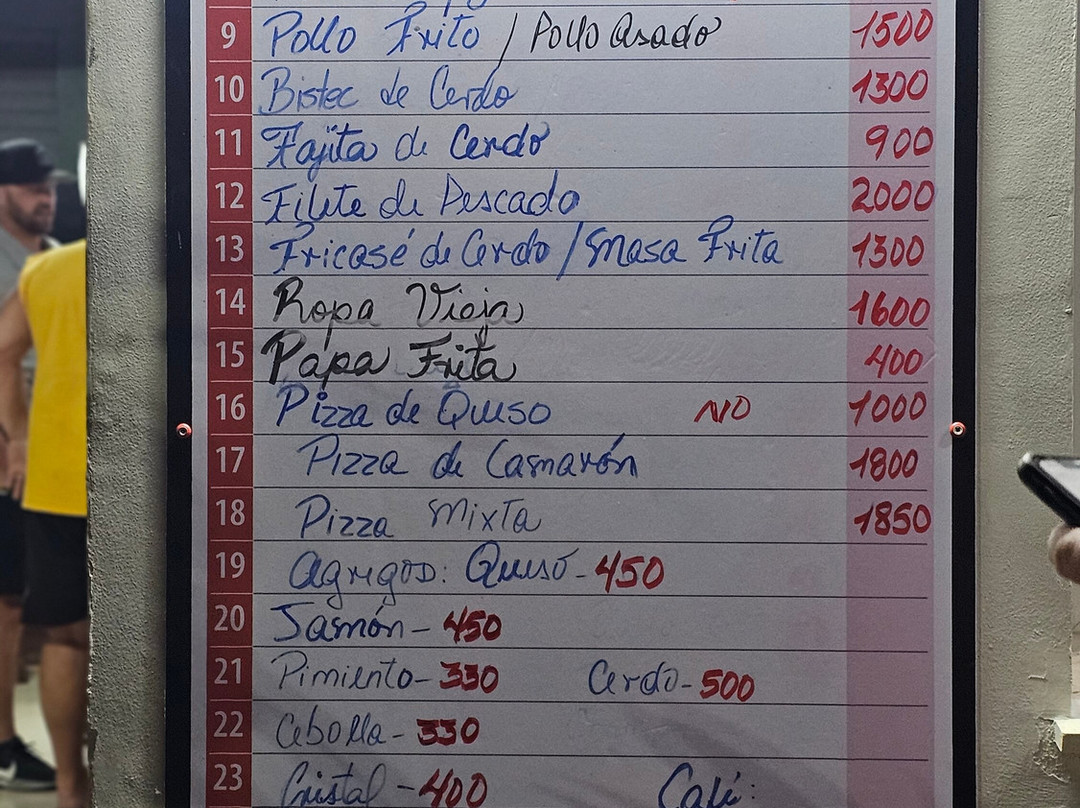 9 Pollo Frito / Pollo Asado 1500
10 Bistec de Cerdo 1300
11 Fajita de Cerdo 900
12 Filete de Pescado 2000
13 Fricasé de Cerdo / Masa Frita 1300
14 Ropa Vieja 1600
15 Papa Frita 400
16 Pizza de Queso NO 1000
17 Pizza de Camarón 1800
18 Pizza Mixta 1850
19 Agregos: Queso - 450
20 Jamón - 450
21 Pimiento - 330 Cerdo - 500
22 Cebolla - 330
23 Cristal - 400 Café: